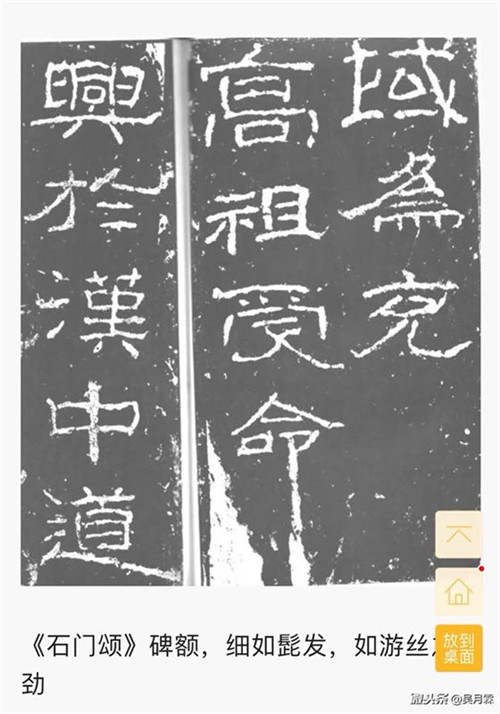 域為充
高祖受命
興於漢中道
《石门颂》碑额，细如髭发，如游丝
劲
放到
桌面
头条@吴月霖